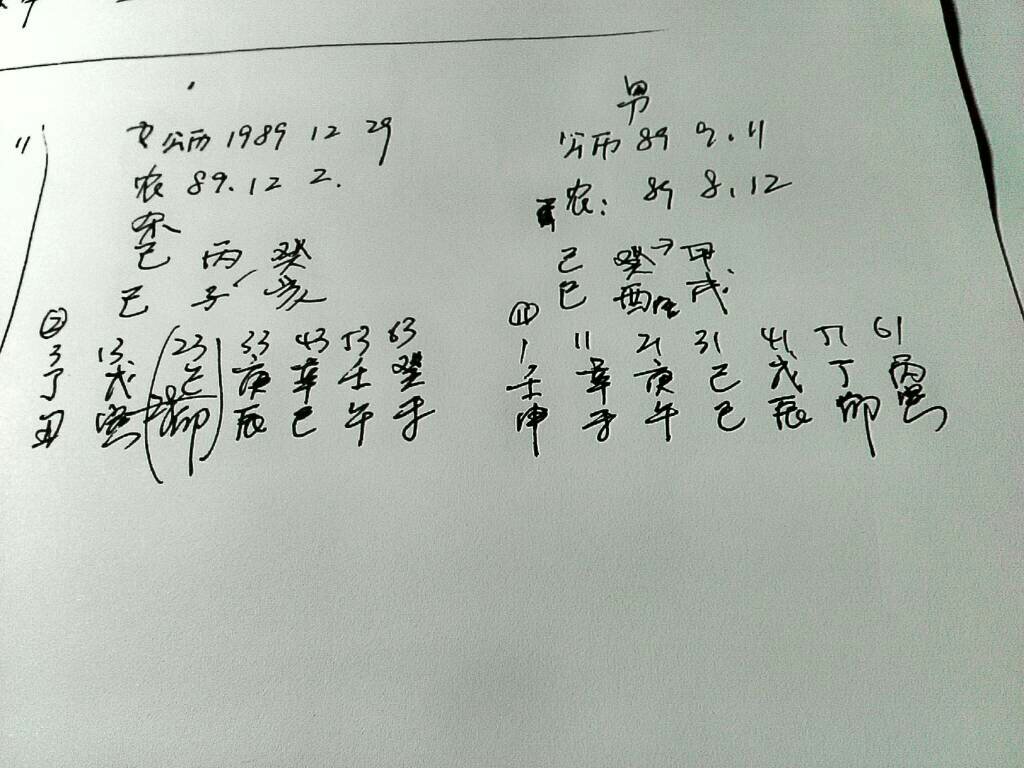 女 公历 1989 12 29
农 89.12 2.
己 丙 癸
巳 子 亥
②
3 13 (23) 33 43 53 63
丁 戊 己 庚 辛 壬 癸
丑 寅 卯 辰 巳 午 未
男
公历 89 9.11
农: 89 8.12
己 癸 甲
巳 酉 戌
⑪
1 11 21 31 41 51 61
壬 辛 庚 己 戊 丁 丙
申 未 午 巳 辰 卯 寅